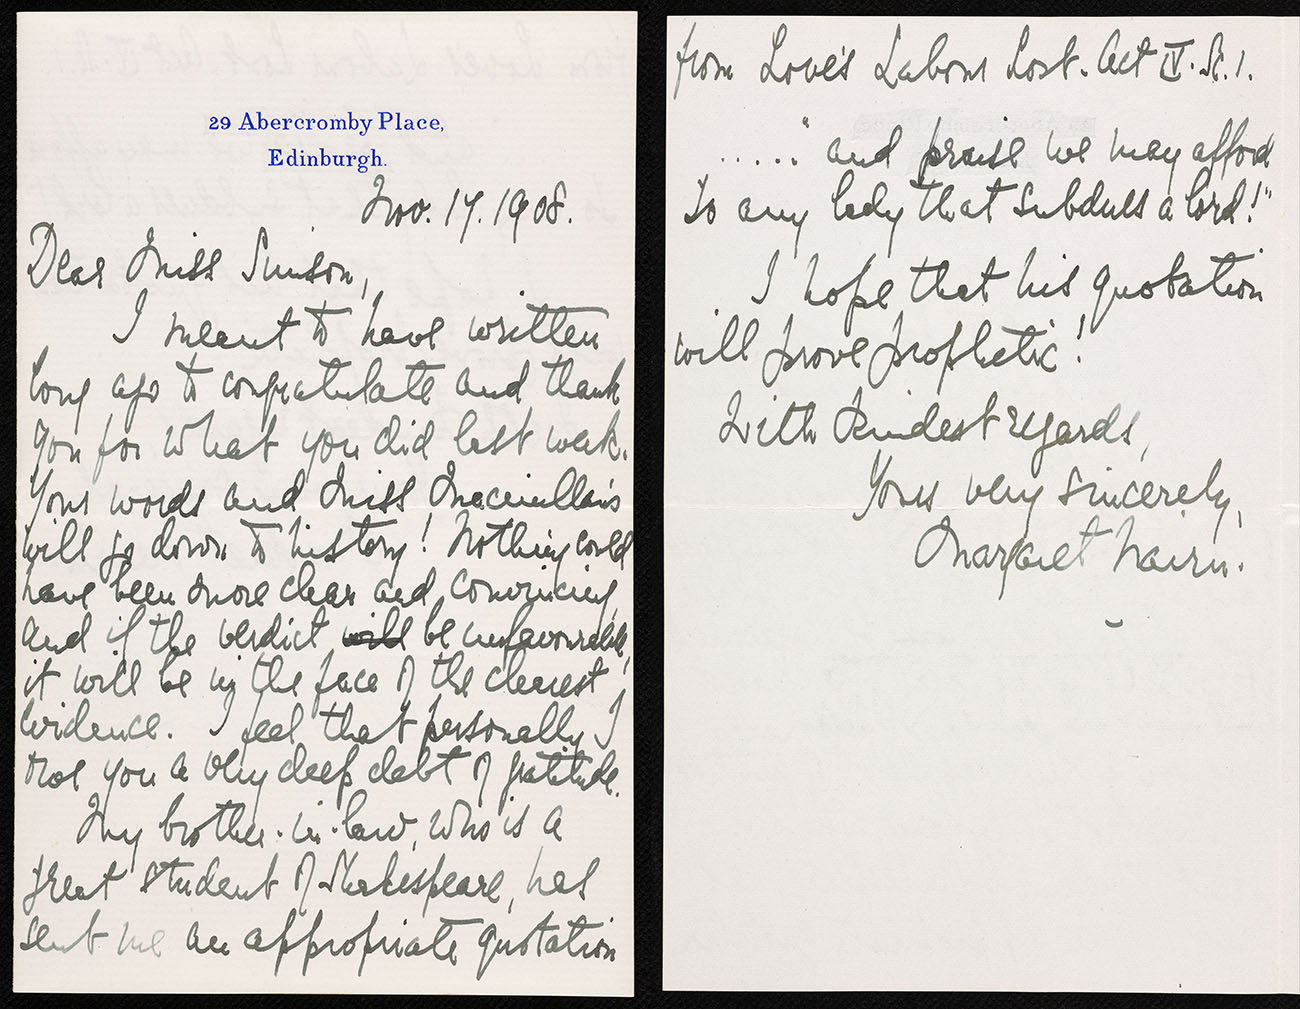 29 Abercromby Place,
Edinburgh.
Nov. 17. 1908.
Dear Miss Simson,
I meant to have written
long ago to congratulate and thank
you for what you did last week.
Your words and Miss Macmillan's
will go down to history! Nothing could
have been more clear and convincing,
and if the verdict will be unfavourable,
it will be in the face of the clearest
evidence. I feel that personally I
owe you a very deep debt of gratitude.
My brother-in-law, who is a
great student of Shakespeare, has
sent me an appropriate quotation
from Love's Labour Lost. Act IV. Sc. 1.
....." and praise we may afford
To any lady that subdues a lord!"
I hope that his quotation
will prove prophetic!
With kindest regards,
Yours very sincerely,
Margaret Nairn.